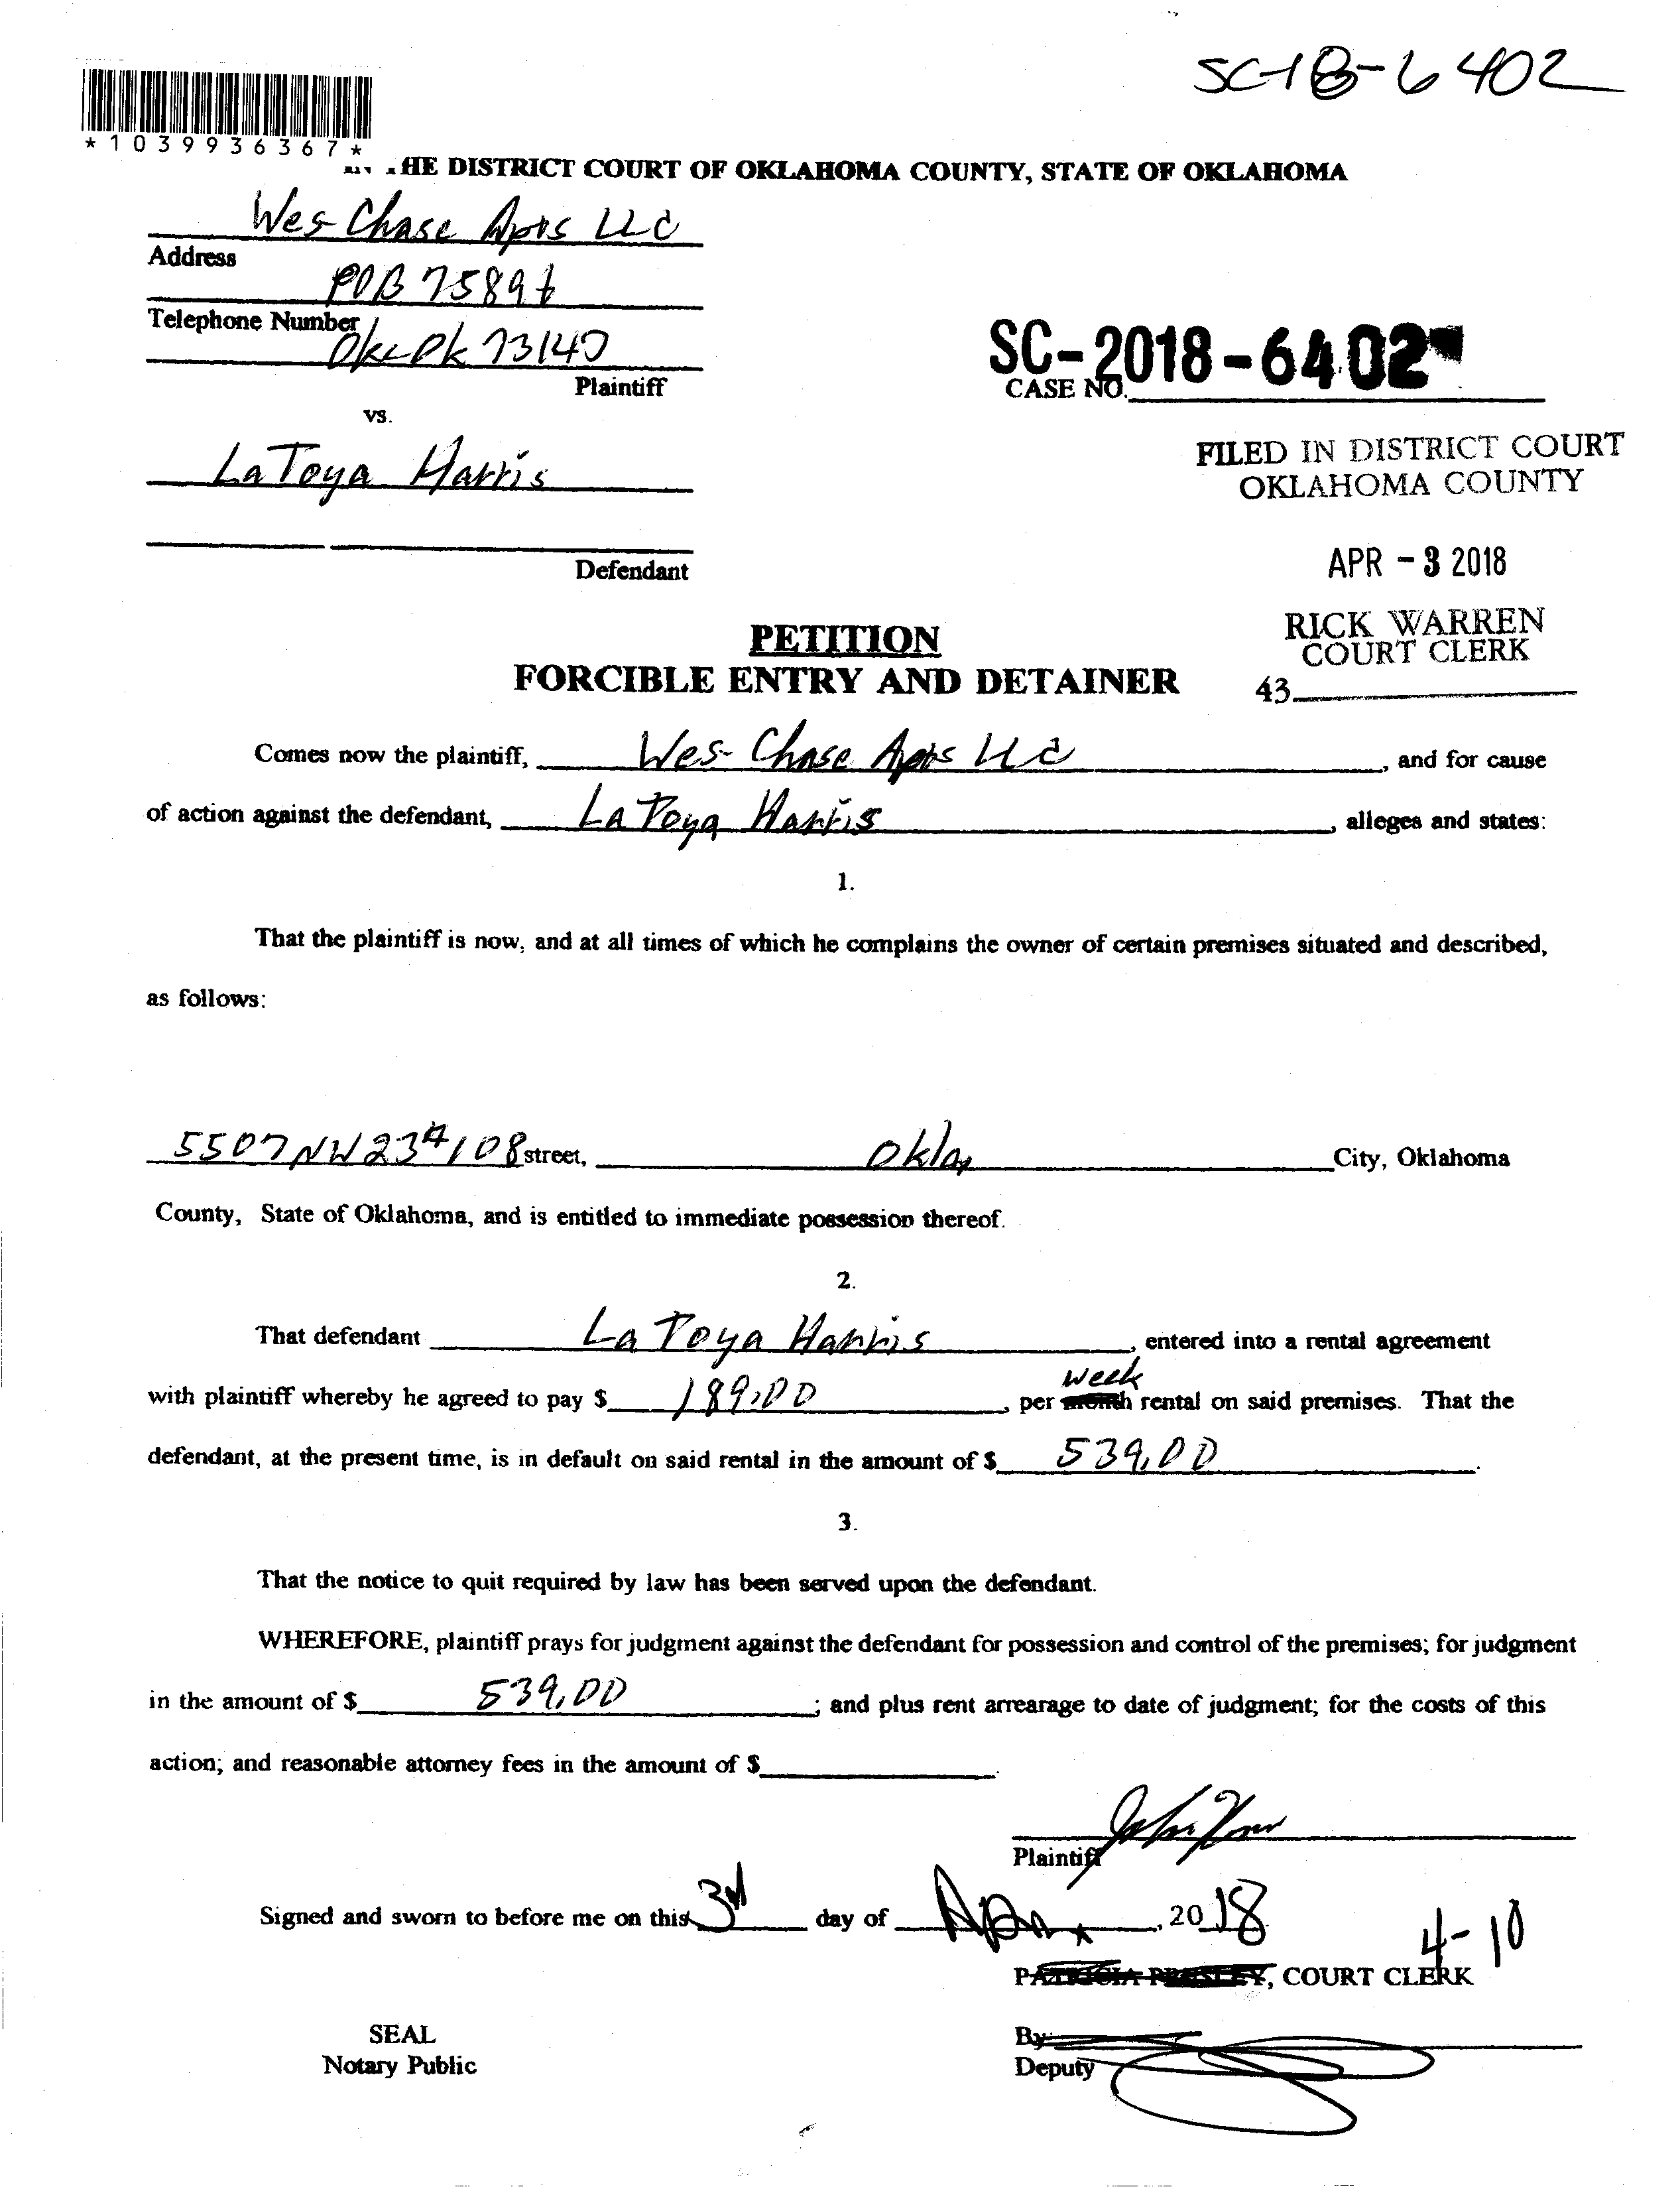 SC-18-6402
*1039936367*
HE DISTRICT COURT OF OKLAHOMA COUNTY, STATE OF OKLAHOMA
Wes Chase Apts LLC
Address
POB 75896
Telephone Number
Okc Ok 73147
Plaintiff
vs.
SC-2018-6402
CASE NO.
LaToya Harris
Defendant
FILED IN DISTRICT COURT
OKLAHOMA COUNTY
APR - 3 2018
RICK WARREN
COURT CLERK
43
PETITION
FORCIBLE ENTRY AND DETAINER
Comes now the plaintiff, Wes-Chase Apts LLC, and for cause
of action against the defendant, LaToya Harris, alleges and states:
1.
That the plaintiff is now, and at all times of which he complains the owner of certain premises situated and described,
as follows:
5507 NW 23rd 108 street, Okla City, Oklahoma
County, State of Oklahoma, and is entitled to immediate possession thereof.
2.
That defendant LaToya Harris, entered into a rental agreement
week
with plaintiff whereby he agreed to pay $ 189.00, per month rental on said premises. That the
defendant, at the present time, is in default on said rental in the amount of $ 539.00.
3.
That the notice to quit required by law has been served upon the defendant.
WHEREFORE, plaintiff prays for judgment against the defendant for possession and control of the premises; for judgment
in the amount of $ 539.00; and plus rent arrearage to date of judgment; for the costs of this
action; and reasonable attorney fees in the amount of $ .
Plaintiff
Signed and sworn to before me on this 3rd day of , 2018
4-10
PATRICIA PRESLEY, COURT CLERK
SEAL
Notary Public
By:
Deputy